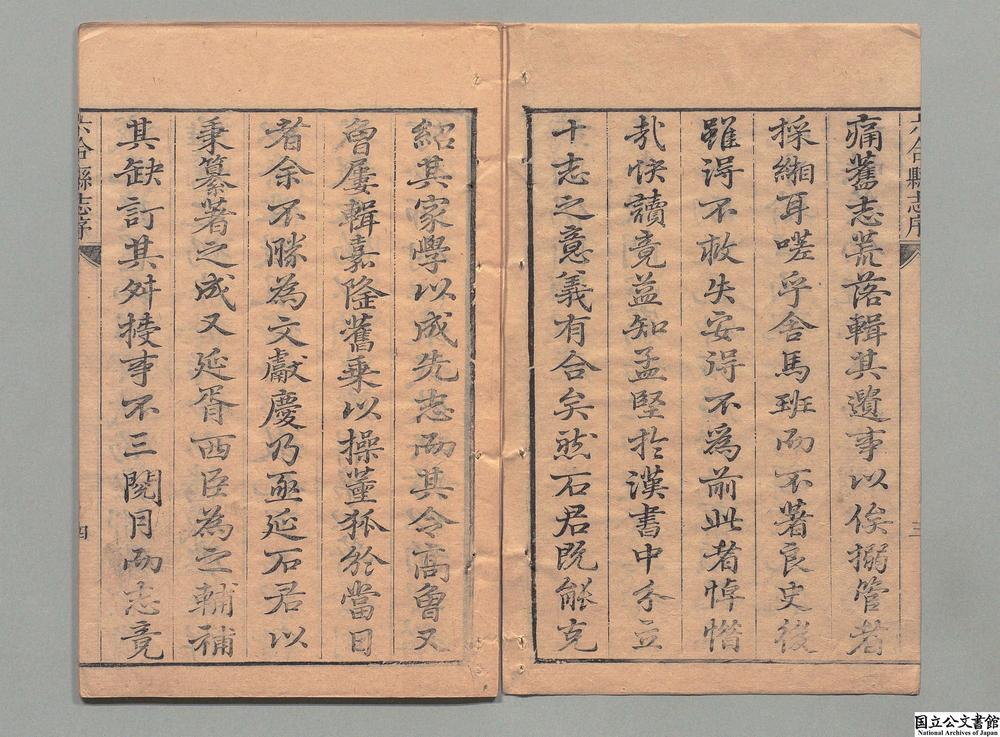 六合縣志序
三
痛舊志荒落輯其遺事以俟搦管者
採緗耳嗟乎舍馬班而不著良史後
雖得不救失安得不為前此者悼惜
㢤快讀竟益知孟堅於漢書中分立
十志之意義有合矣然石君既能克
紹其家學以成先志而其令高魯又
魯屢輯嘉隆舊乗以操董狐於當日
者余不勝為文獻慶乃亟延石君以
秉纂著之成又延胥西臣為之輔補
其缺訂其舛接事不三閱月而志竟
六合縣志序
四
国立公文書館
National Archives of Japan